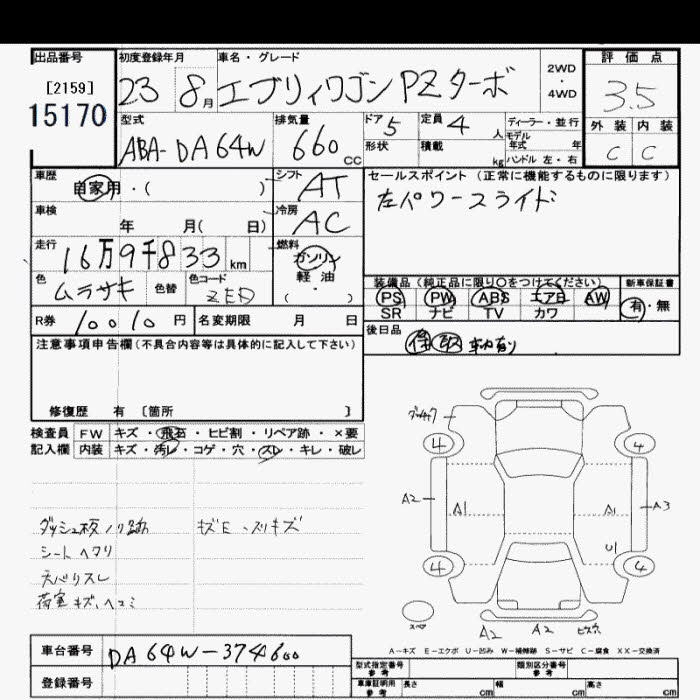 出品番号 初度登録年月 車名・グレード 評価点
[2159] 23 8月 エブリィワゴン PZターボ 2WD・4WD 3.5
15170
型式 排気量 ドア 5 定員 4人 ディーラー・並行 外装 内装
ABA-DA64W 660cc 形状 積載 kg モデル年式 年 C C
ハンドル 左・右
車歴 自家用・( ) シフト AT セールスポイント (正常に機能するものに限ります)
車検 年 月( 日) 冷房 AC 左パワースライド
走行 16万9千833km 燃料 ガソリン 軽・油 ( )
色 ムラサキ 色替 色コード ZED 装備品(純正品に限り○をつけてください) 新車保証書
PS PW ABS エアB AW 有・無
SR ナビ TV カワ
R券 10010円 名変期限 月 日 後日品
注意事項申告欄(不具合内容等は具体的に記入して下さい)
修復歴 有 [箇所 ]
検査員 FW キズ・飛石・ヒビ割・リペア跡・×要
記入欄 内装 キズ・汚レ・コゲ・穴・スレ・キレ・破レ
4 4
A2 A1 A1 A3
U1
4 4
ダッシュ板ノリ跡 キズE・スリキズ
シートヘタリ
天バリスレ
荷室キズ、ヘコミ
スペア A2 A2 ビス穴
A-キズ E-エクボ U-凹み W-補修跡 S-サビ C-腐食 XX-交換済
車台番号 DA64W-374600
登録番号
型式指定番号 参考 類別区分番号 参考
車庫証明用 参考 長さ cm 幅 cm 高さ cm